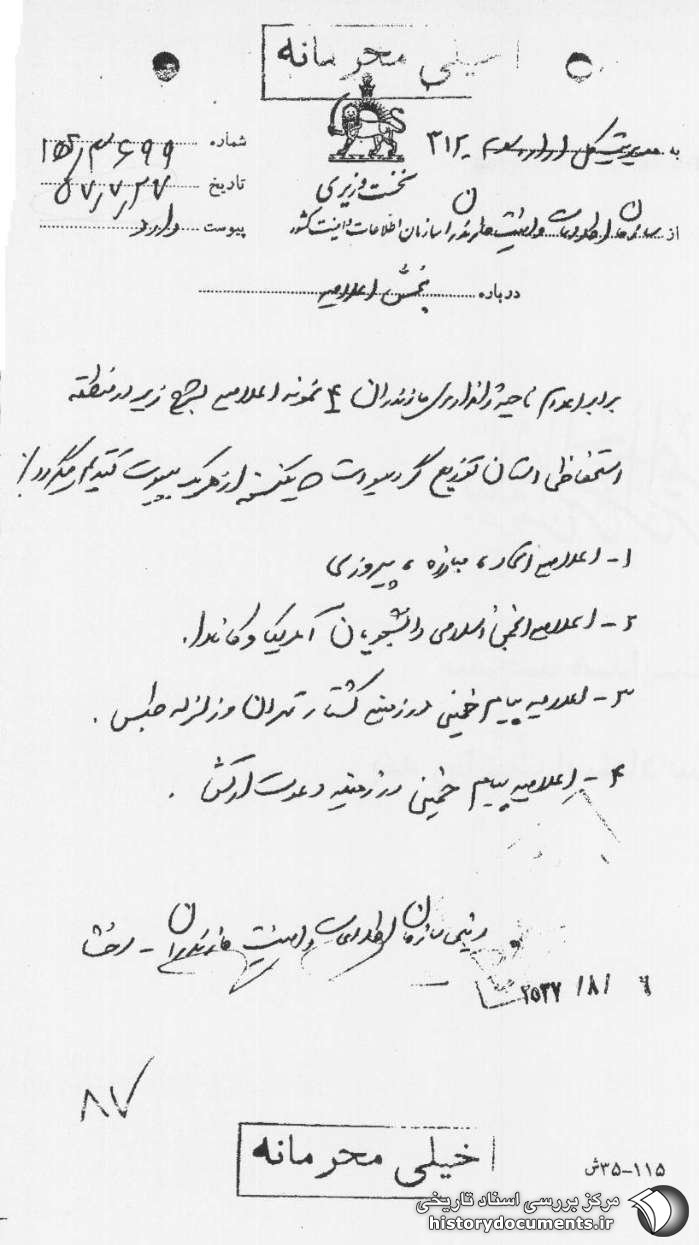 خیلی محرمانه
به مدیریت کل اداره سوم ۳۱۲
شماره ۱۵۲/۳۶۹۹
نخست وزیری
تاریخ ۵۷/۷/۲۷
از سازمان اطلاعات و امنیت مازندران سازمان اطلاعات و امنیت کشور
پیوست دارد
درباره پخش اعلامیه
برابر اعلام ناحیه ژاندارمری مازندران ۴ نمونه اعلامیه بشرح زیر در منطقه
استحفاظی استان توزیع گردیده است یکنسخه از هر یک بپیوست تقدیم میگردد
۱- اعلامیه اتحاد، مبارزه، پیروزی
۲- اعلامیه انجمن اسلامی دانشجویان آمریکا و کانادا.
۳- اعلامیه پیام خمینی در زمینه کشتار تهران و زلزله طبس.
۴- اعلامیه پیام خمینی در زمینه دعوت ارتش.
رئیس سازمان اطلاعات و امنیت مازندران -
۲۵۳۷ /۸/ ۶
۸۷
خیلی محرمانه
۳۵-۱۱۵ش
مرکز بررسی اسناد تاریخی
historydocuments.ir